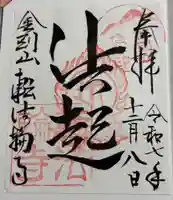 奉拝
令和七年
十二月八日
法起
金剛山
転法輪寺